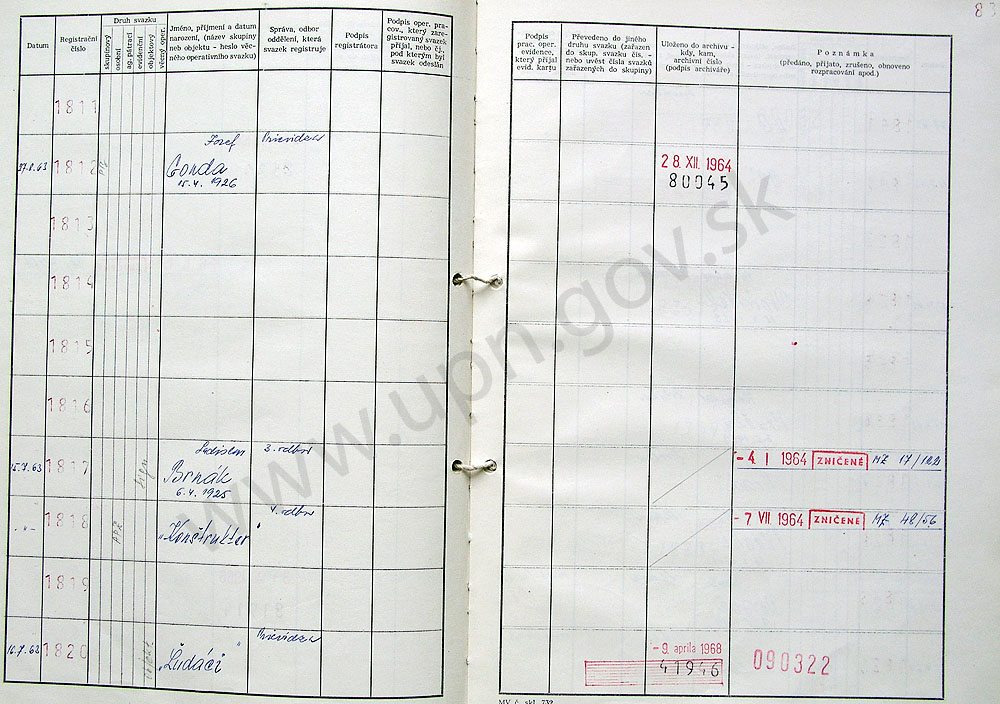 Datum
Registrační
číslo
Druh svazku
skupinový
osobní
ag. pátrací
evidenční
objektový
věcný oper.
Jméno, příjmení a datum
narození, (název skupiny
neb objektu - heslo věc-
ného operativního svazku)
Správa, odbor
oddělení, která
svazek registruje
Podpis
registrátora
Podpis oper. pra-
cov., který zare-
gistrovaný svazek
přijal, nebo čj.,
pod kterým byl
svazek odeslán
1811
1812
Jozef
Gonda
15.4. 1926
Prievidza
1813
1814
1815
1816
15.7.63
1817
Ladislav
Brnák
6.4.1925
3. odbor
- " -
1818
„Konštruktér"
4. odbor
1819
1820
„Ľudáci"
Prievidza
83
Podpis
prac. oper.
evidence,
který přijal
evid. kartu
Převedeno do jiného
druhu svazku (zařazen
do skup. svazku čís. -
nebo uvést čísla svazků
zařazených do skupiny)
Uloženo do archivu -
kdy, kam,
archivní číslo
(podpis archiváře)
Poznámka
(předáno, přijato, zrušeno, obnoveno
rozpracování apod.)
28. XII. 1964
80045
- 4. I 1964 ZNIČENÉ MZ 17/
- 7 VII. 1964 ZNIČENÉ MZ 48/56
- 9. apríla 1968
41946
090322
MV č. skl. 732
www.upn.gov.sk